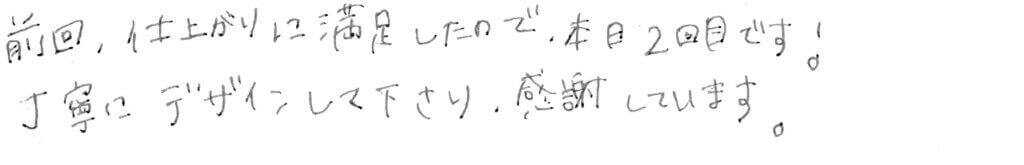 前回、仕上がりに満足したので、本日2回目です！
丁寧にデザインして下さり、感謝しています。